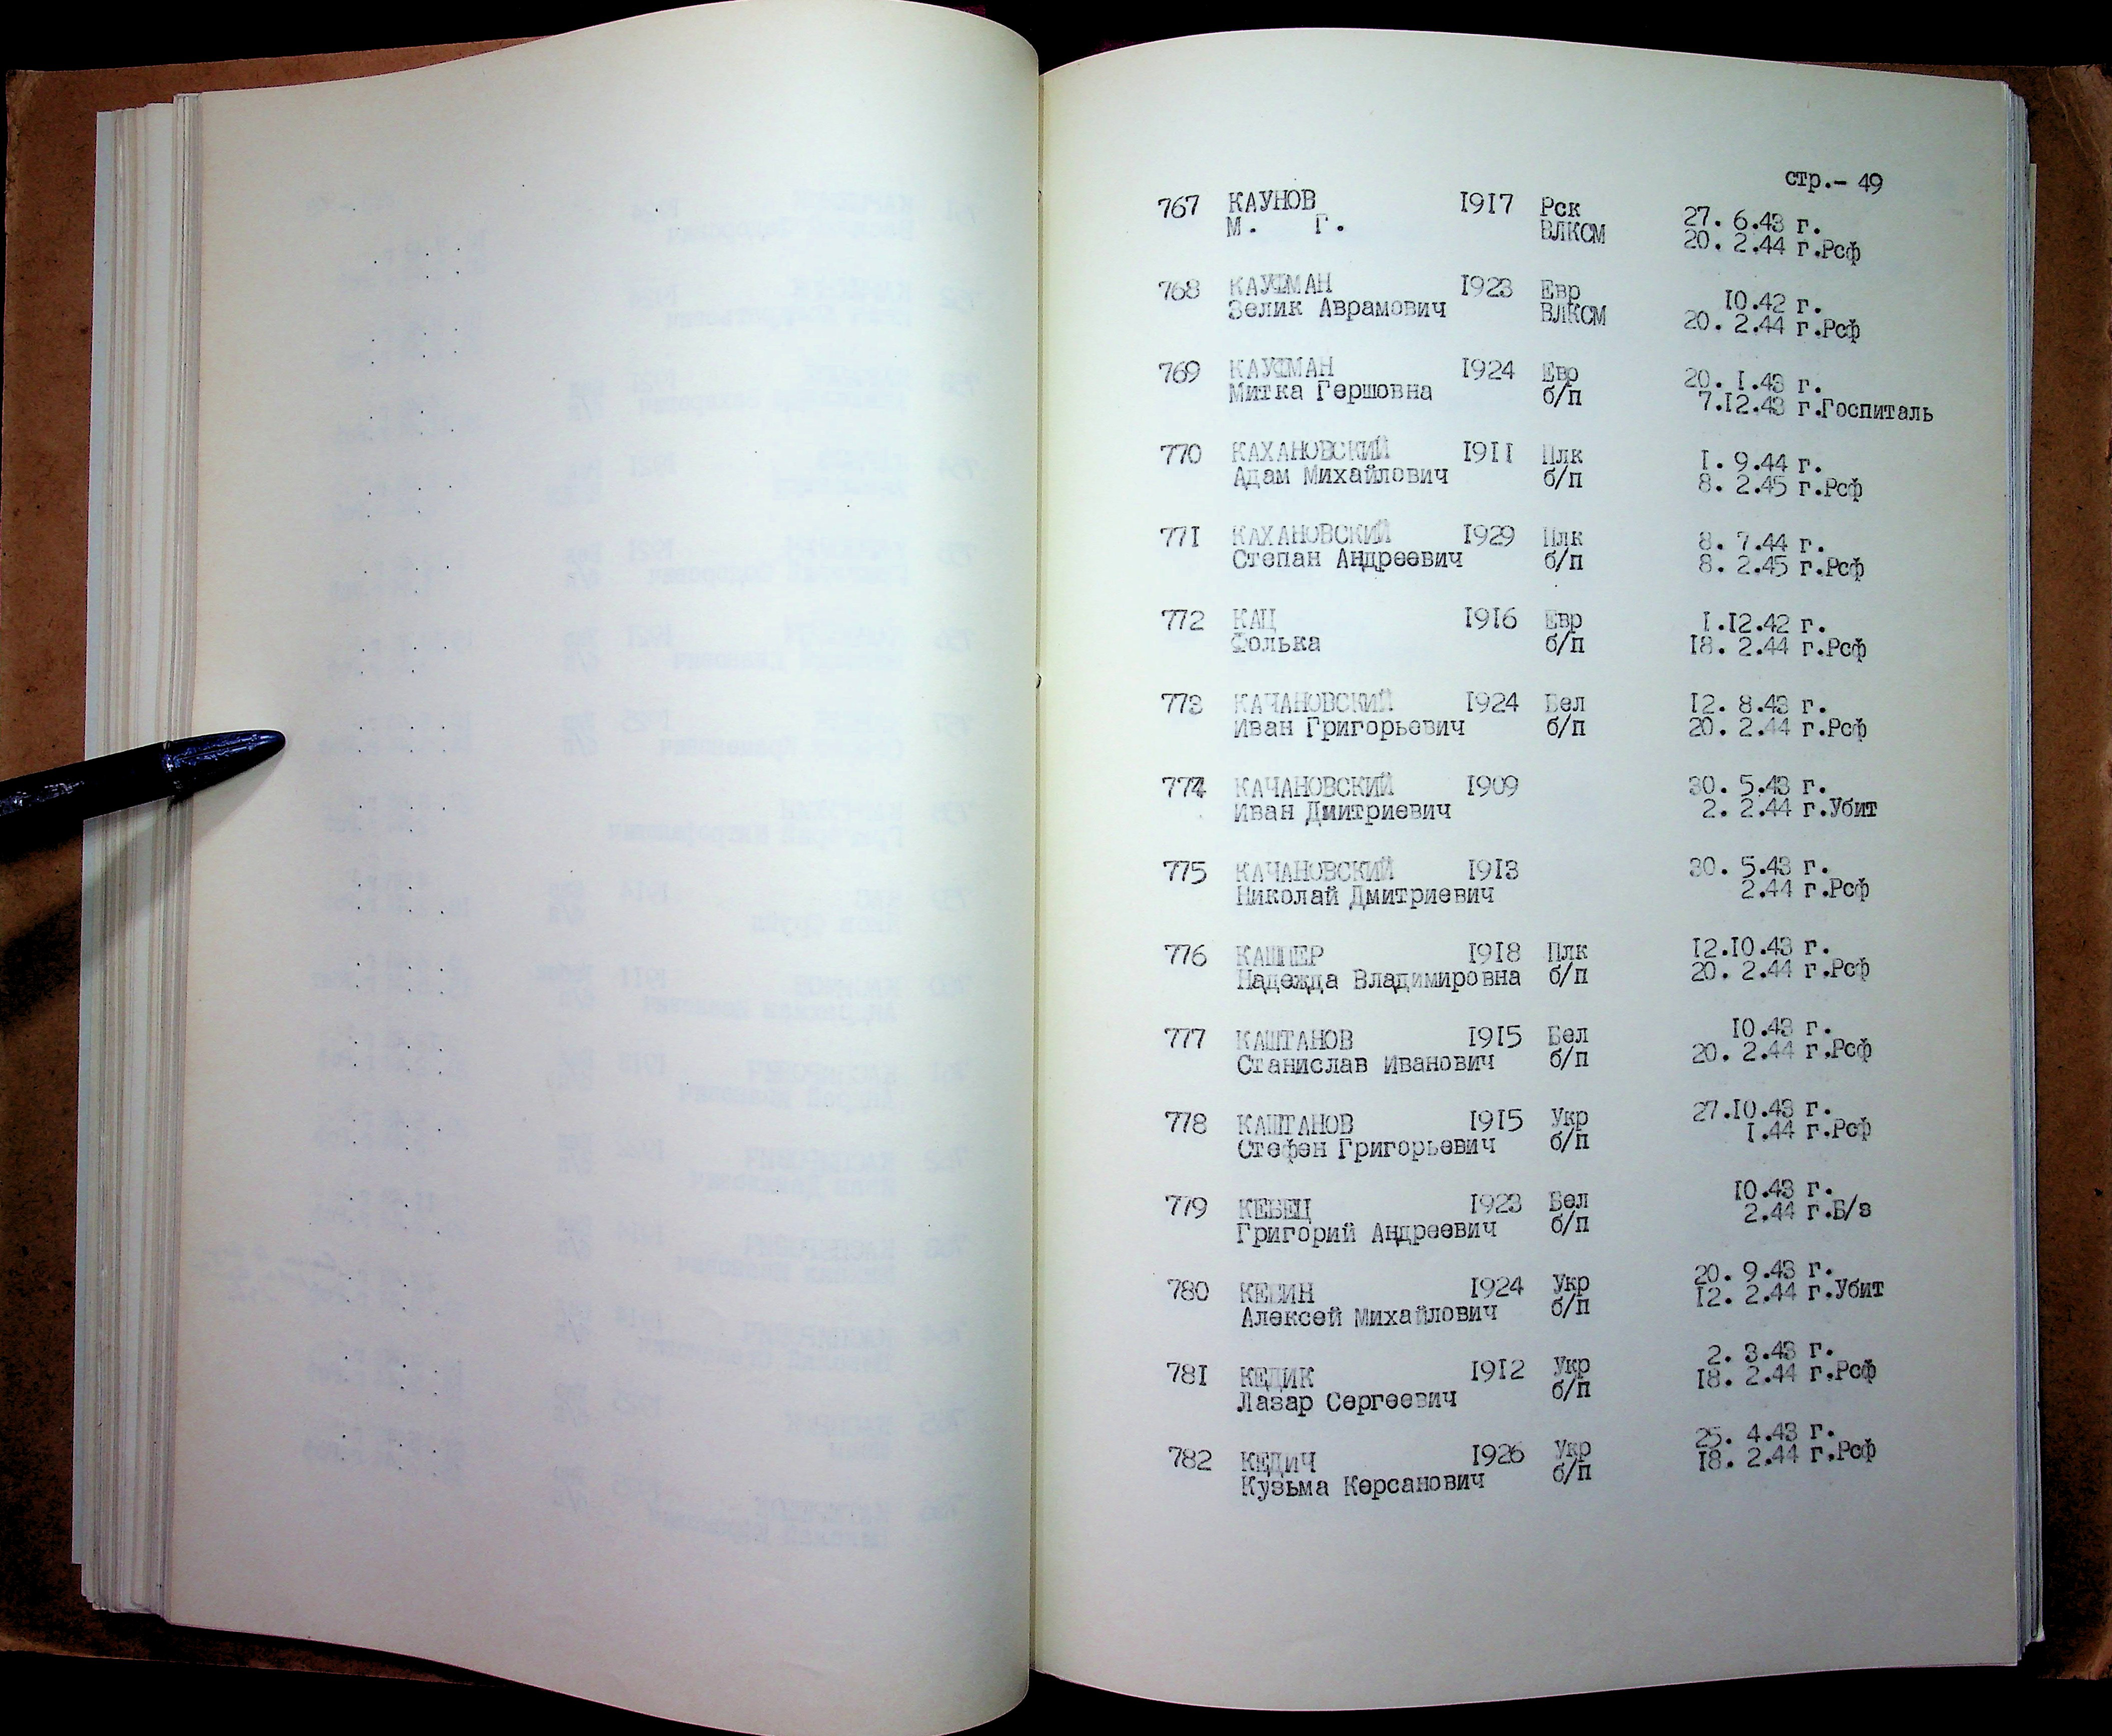 стр.- 49
767 КАУНОВ 1917 Рск 27. 6.43 г.
М. Г. ВЛКСМ 20. 2.44 г.Рсф
768 КАУФМАН 1923 Евр 10.42 г.
Зелик Аврамович ВЛКСМ 20. 2.44 г.Рсф
769 КАУФМАН 1924 Евр 20. 1.43 г.
Митка Гершовна б/п 7.12.43 г.Госпиталь
770 КАХАНОВСКИЙ 1911 Плк 1. 9.44 г.
Адам Михайлович б/п 8. 2.45 г.Рсф
771 КАХАНОВСКИЙ 1929 Плк 8. 7.44 г.
Степан Андреевич б/п 8. 2.45 г.Рсф
772 КАЦ 1916 Евр 1.12.42 г.
Фолька б/п 18. 2.44 г.Рсф
773 КАЧАНОВСКИЙ 1924 Бел 12. 8.43 г.
Иван Григорьевич б/п 20. 2.44 г.Рсф
774 КАЧАНОВСКИЙ 1909 30. 5.43 г.
Иван Дмитриевич 2. 2.44 г.Убит
775 КАЧАНОВСКИЙ 1913 30. 5.43 г.
Николай Дмитриевич 2.44 г.Рсф
776 КАШПЕР 1918 Плк 12.10.43 г.
Надежда Владимировна б/п 20. 2.44 г.Рсф
777 КАШТАНОВ 1915 Бел 10.43 г.
Станислав Иванович б/п 20. 2.44 г.Рсф
778 КАШТАНОВ 1915 Укр 27.10.43 г.
Стефен Григорьевич б/п 1.44 г.Рсф
779 КЕБЕЦ 1923 Бел 10.43 г.
Григорий Андреевич б/п 2.44 г.Б/з
780 1924 Укр 20. 9.43 г.
Алексей Михайлович б/п 12. 2.44 г.Убит
781 КЕДИК 1912 Укр 2. 3.43 г.
Лазар Сергеевич б/п 18. 2.44 г.Рсф
782 КЕДИЧ 1926 Укр 25. 4.43 г.
Кузьма Керсанович б/п 18. 2.44 г.Рсф